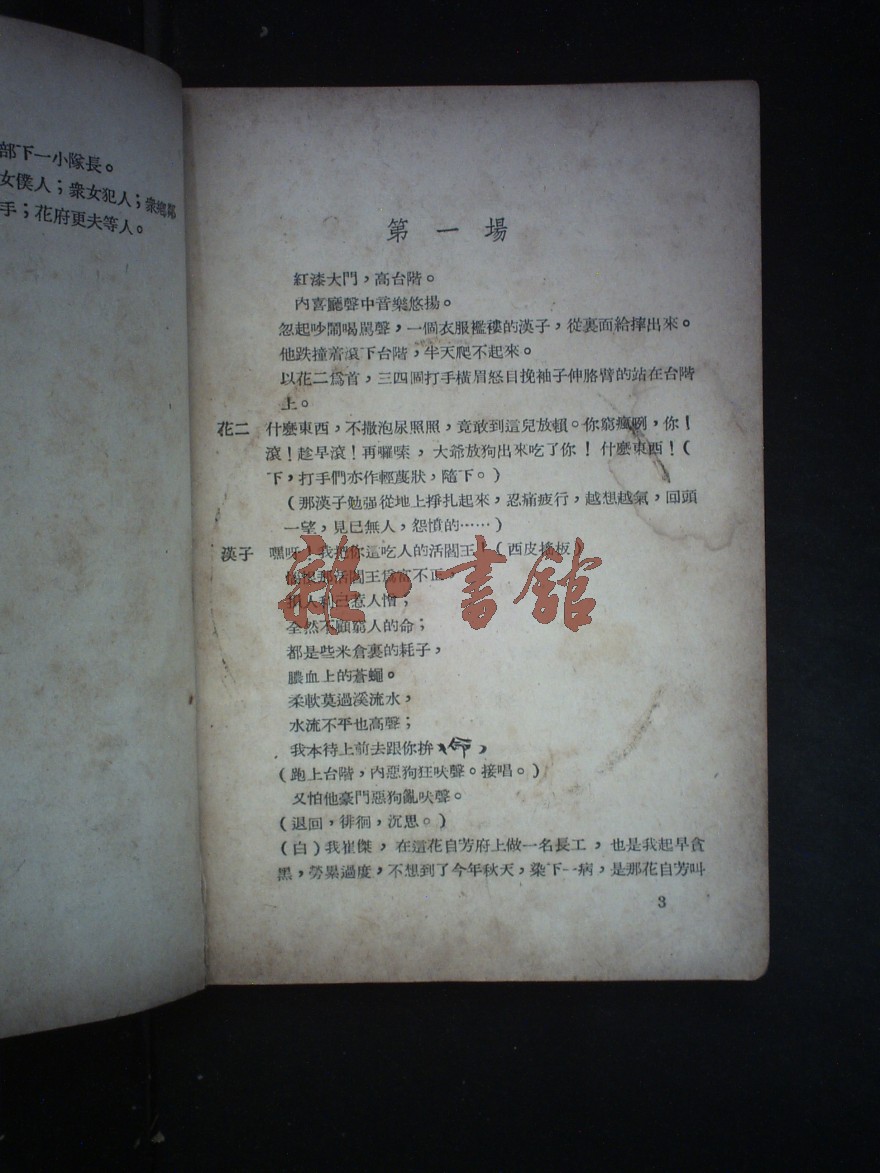 部下一小隊長。
女僕人；衆女犯人；衆鄉鄰
手；花府更夫等人。
第一場
紅漆大門，高台階。
內喜廳聲中音樂悠揚。
忽起吵鬧喝罵聲，一個衣服襤褸的漢子，從裏面給摔出來。
他跌撞着滾下台階，半天爬不起來。
以花二爲首，三四個打手橫眉怒目挽袖子伸胳臂的站在台階
上。
花二 什麼東西，不撒泡尿照照，竟敢到這兒放賴。你窮瘋咧，你！
滾！趁早滾！再囉嗦，大爺放狗出來吃了你！什麼東西！（
下，打手們亦作輕蔑狀，隨下。）
（那漢子勉强從地上掙扎起來，忍痛疲行，越想越氣，回頭
一望，見已無人，怨憤的……）
漢子 嘿呀！我把你這吃人的活閻王上（西皮搖板）
恨那活閻王爲富不正，
損人利己惹人憎；
全然不顧窮人的命；
都是些米倉裏的耗子，
膿血上的蒼蠅。
柔軟莫過溪流水，
水流不平也高聲；
我本待上前去跟你拚命，
（跑上台階，內惡狗狂吠聲。接唱。）
又怕他豪門惡狗亂吠聲。
（退回，徘徊，沉思。）
（白）我崔傑，在這花自芳府上做一名長工，也是我起早貪
黑，勞累過度，不想到了今年秋天，染下一病，是那花自芳叫
3
雜·書舘